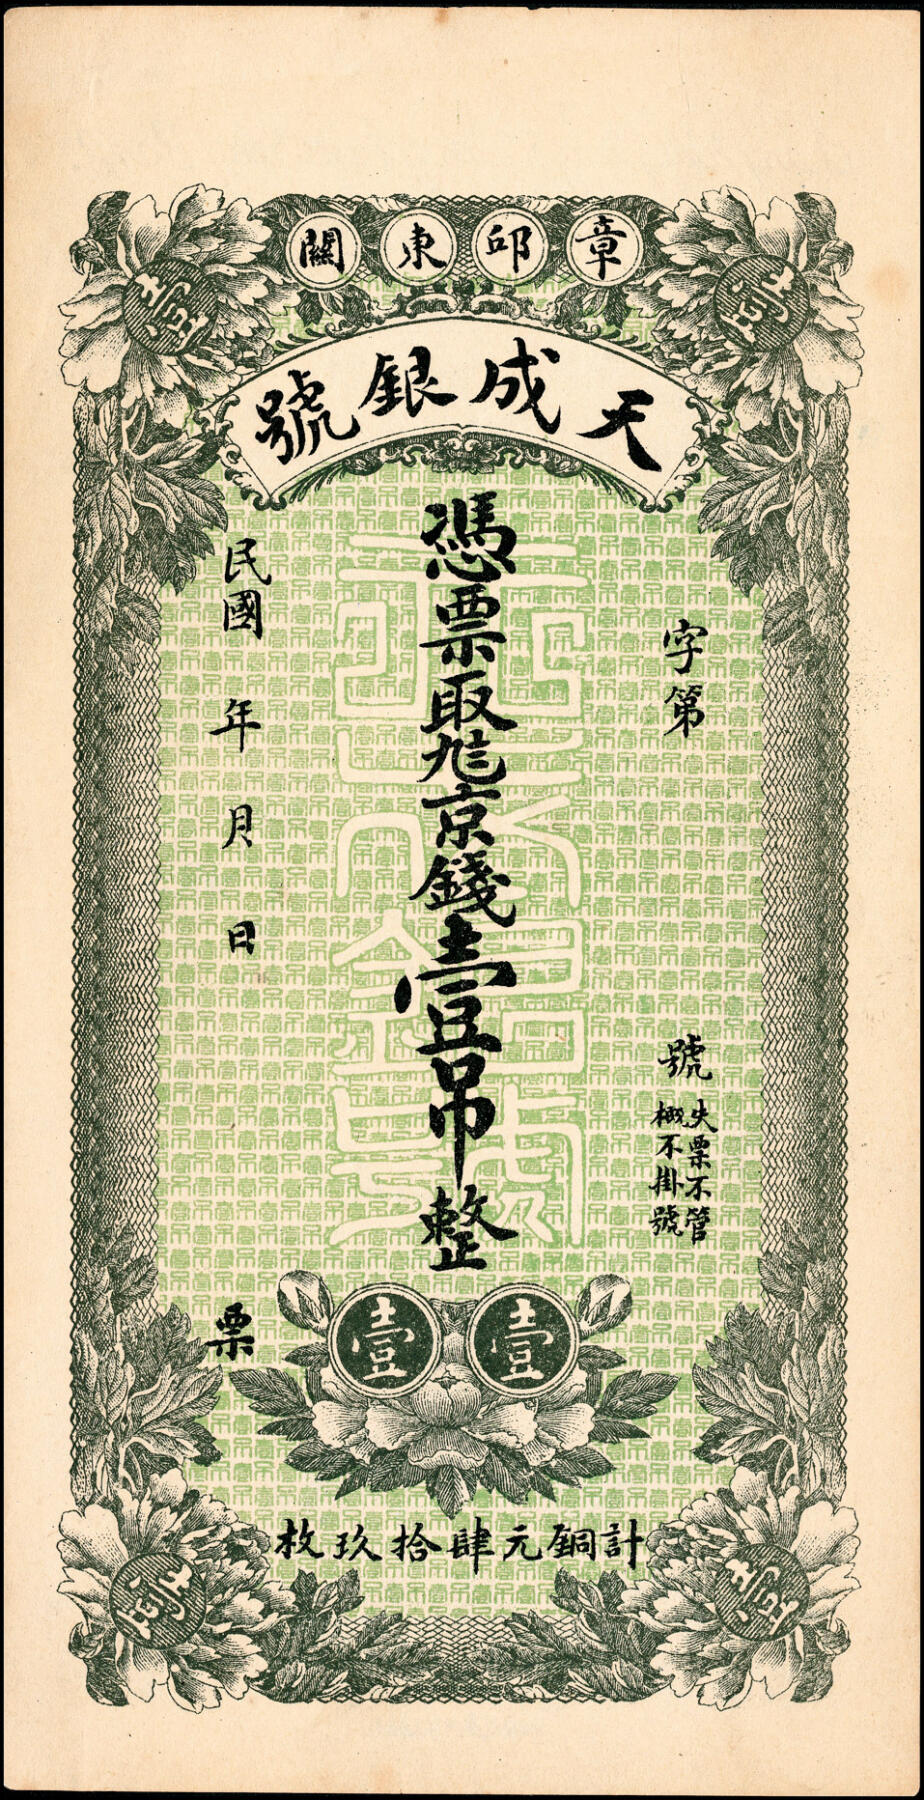 章邱東關
天成銀號
壹
吊
字第 號
失票不管
概不掛號
憑票取九〨京錢壹吊整
民國 年 月 日
票
壹 壹
計銅元肆拾玖枚
吊
壹